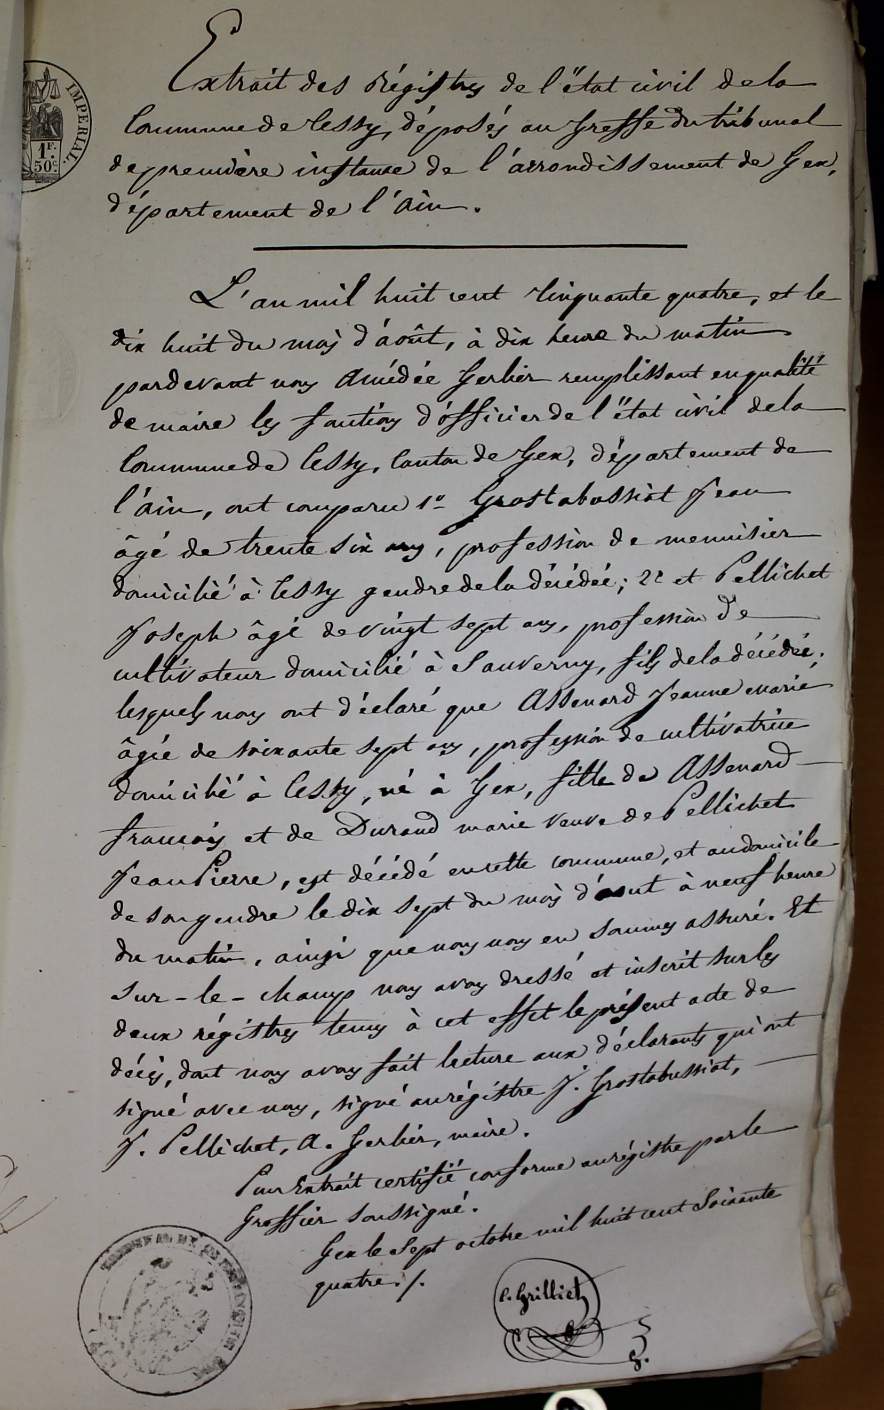 IMPERIAL.
1 F.
50 c.
Extrait des Régistres de l'état civil de la
Commune de Cessy, déposés au Greffe du tribunal
de première instance de l'arrondissement de Gex,
département de l'Ain.
L'an mil huit cent cinquante quatre, et le
dix huit du mois d'août, à dix heure du matin
pardevant nous Amédée Gerlier remplissant en qualité
de maire les fontions d'officier de l'état civil de la
Commune de Cessy, Canton de Gex, département de
l'ain, ont comparu 1° Grostabussiat Jean
âgé de trente six ans, profession de menuisier
domicilié à Cessy gendre de la décédée; 2° et Pellichet
Joseph âgé de vingt sept ans, profession de
cultivateur domicilié à Sauverny, fils de la décédée;
lesquels nous ont déclaré que Assenard Jeanne marie
âgée de soixante sept ans, profession de cultivatrice
domicilié à Cessy, né à Gex, fille de Assenard
francois et de Durand marie veuve de Pellichet
Jean Pierre, est décédé en cette commune, et au domicile
de son gendre le dix sept du mois d'aout à neuf heure
du matin, ainsi que nous nous en sommes assuré. Et
sur-le-champ nous avons dressé et inscrit sur les
deux régistres tenus à cet effet le présent acte de
décès, dont nous avons fait lecture aux déclarants qui ont
signé avec nous, signé au régistre J. Grostabussiat,
J. Pellichet, A. Gerlier, maire.
Pour Extrait certifié conforme au régistre par le
Greffier soussigné.
Gex le sept octobre mil huit cent soixante
quatre./.
C. Grilliet